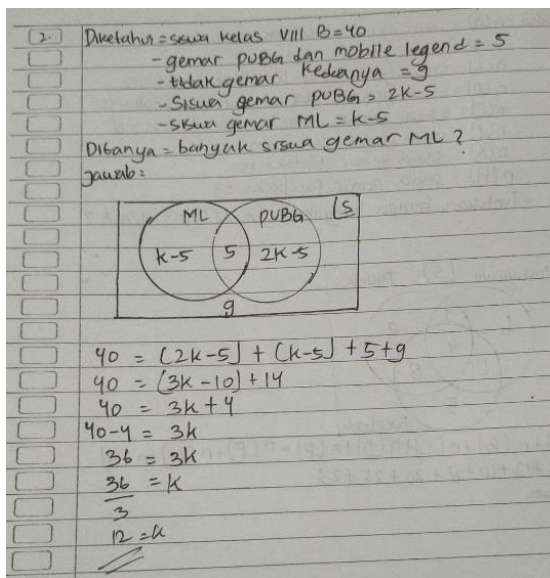 2. Diketahui = siswa kelas VIII B = 40
- gemar PUBG dan mobile legend = 5
- tidak gemar keduanya = 9
- Siswa gemar PUBG = 2k-5
- siswa gemar ML = k-5
Ditanya = banyak siswa gemar ML ?
Jawab =
ML PUBG S
k-5 5 2k-5
9
40 = (2k-5) + (k-5) + 5+9
40 = (3k-10) + 14
40 = 3k+4
40-4 = 3k
36 = 3k
36/3 = k
12 = k